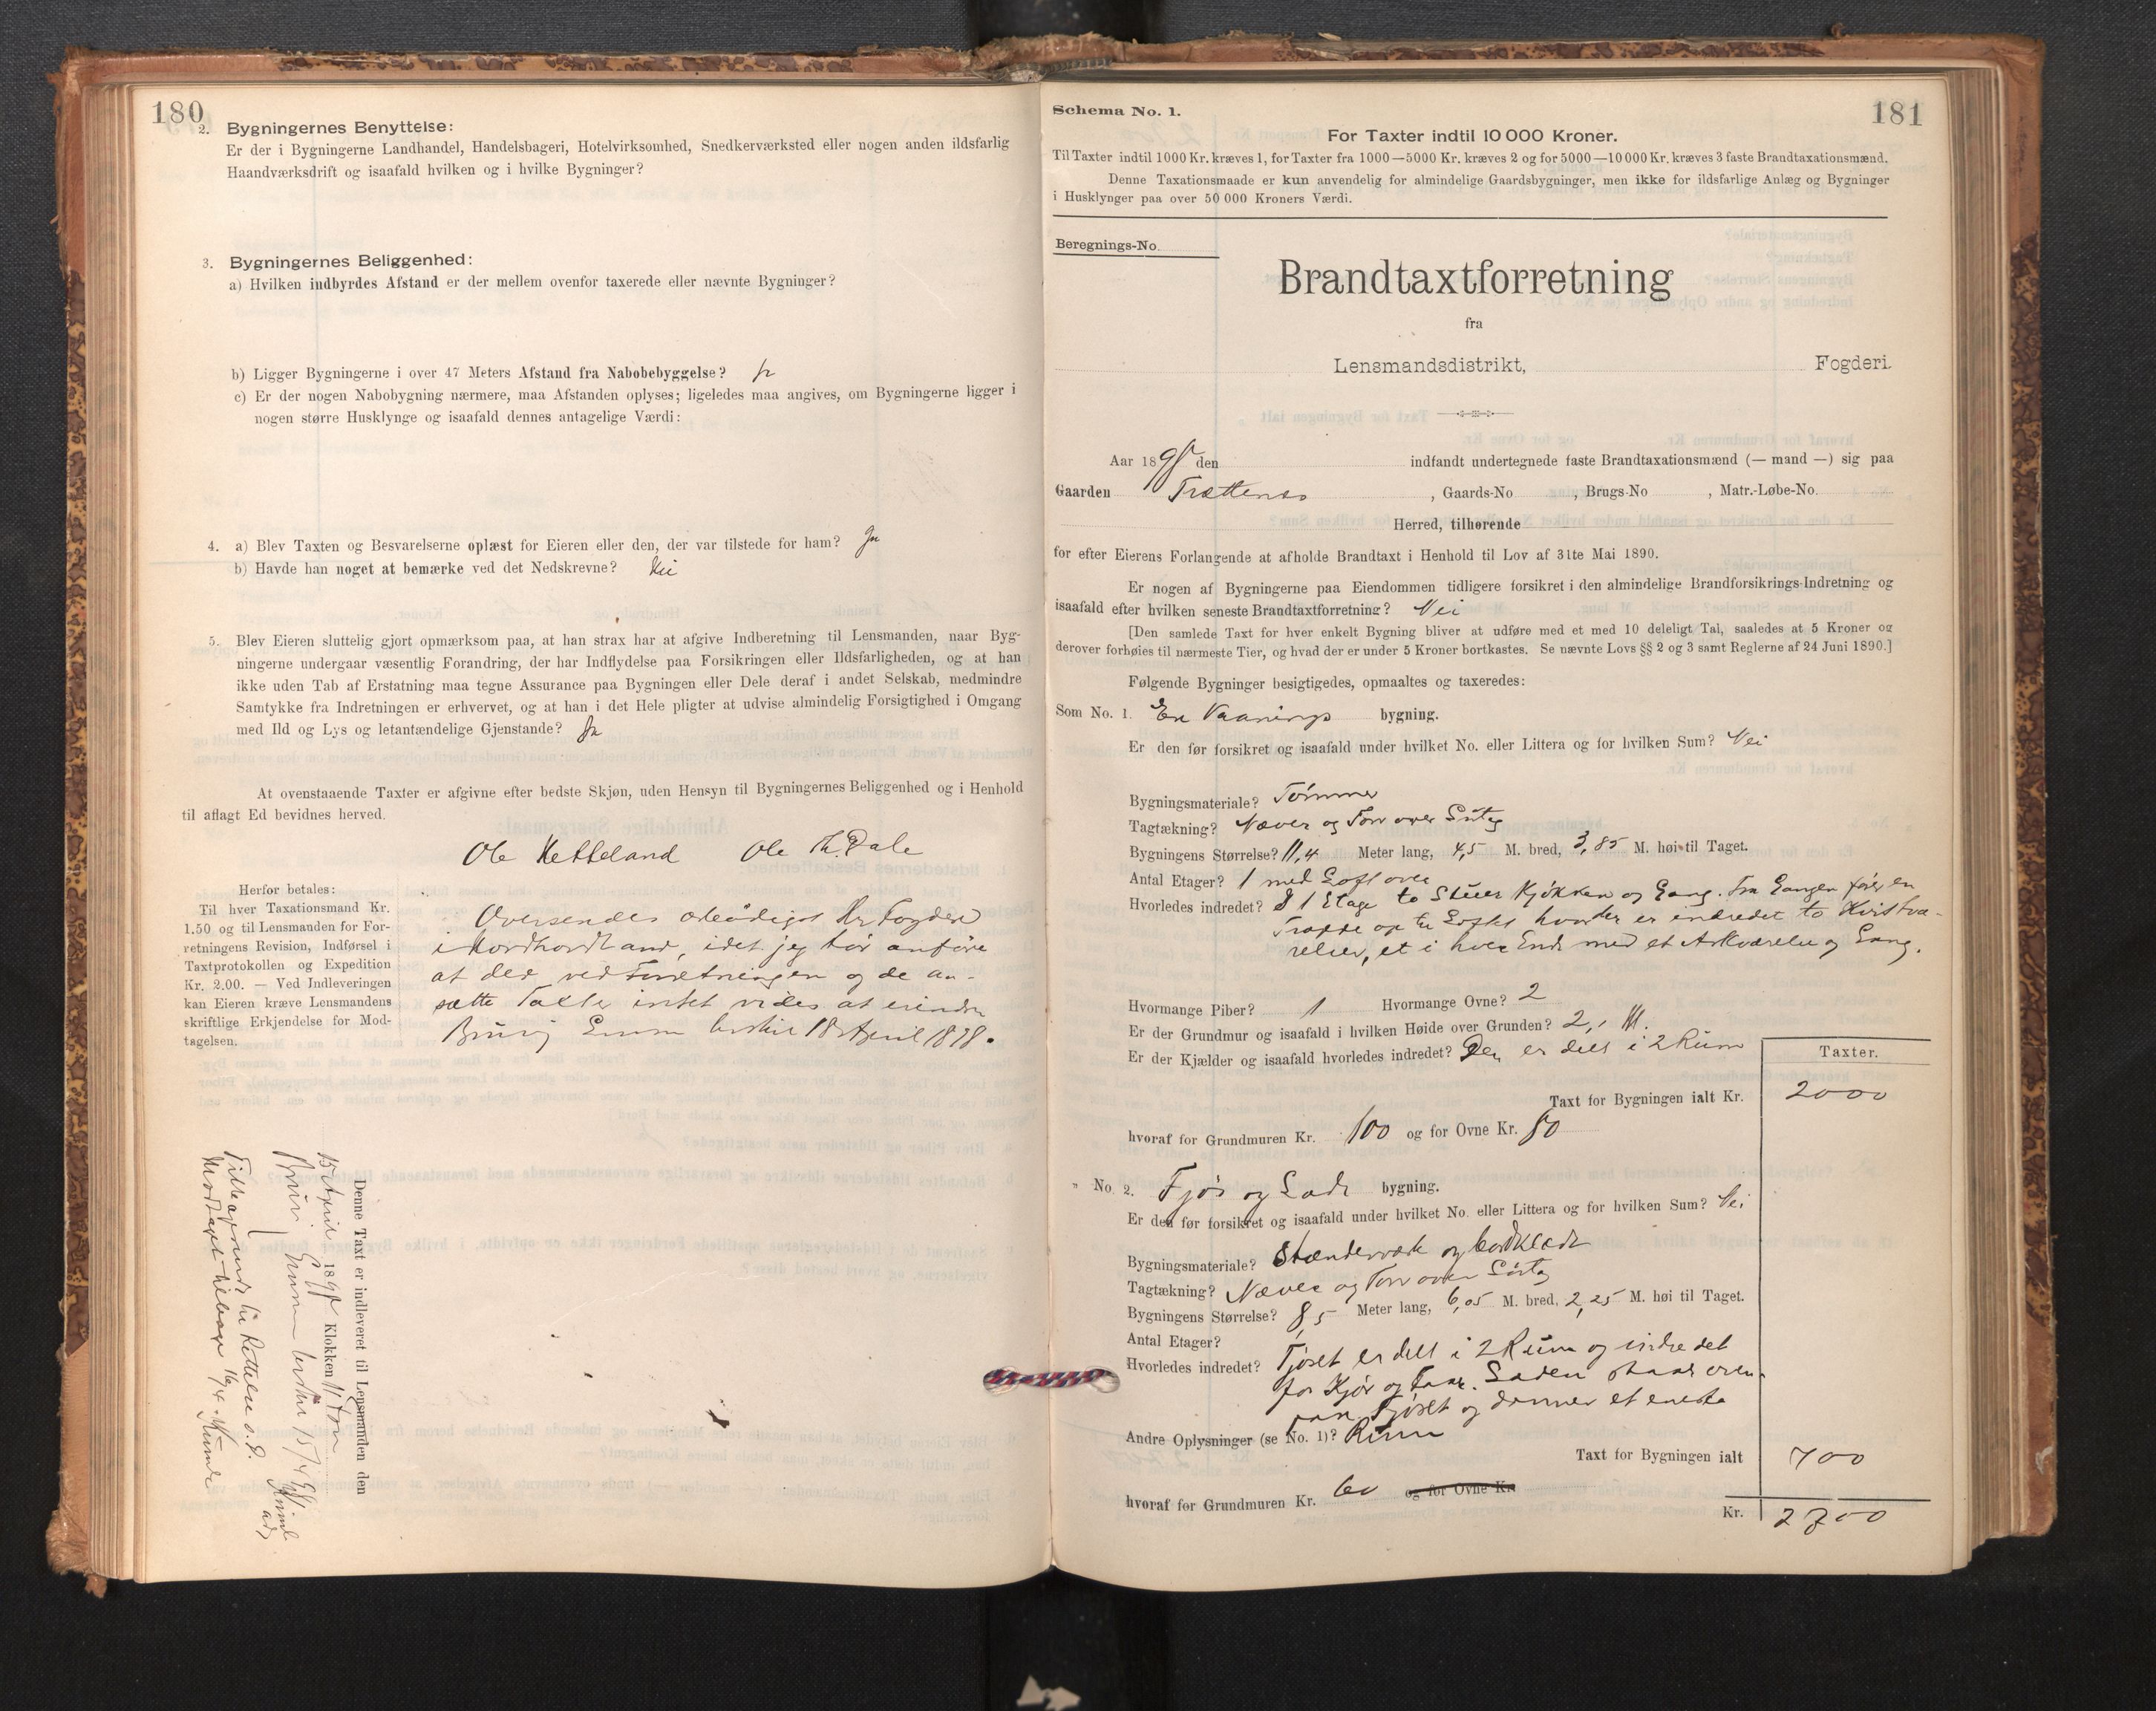 180
2. Bygningernes Benyttelse:
Er der i Bygningerne Landhandel, Handelsbageri, Hotelvirksomhed, Snedkerværksted eller nogen anden ildsfarlig
Haandværksdrift og isaafald hvilken og i hvilke Bygninger?
3. Bygningernes Beliggenhed:
a) Hvilken indbyrdes Afstand er der mellem ovenfor taxerede eller nævnte Bygninger?
b) Ligger Bygningerne i over 47 Meters Afstand fra Nabobebyggelse? Ja
c) Er der nogen Nabobygning nærmere, maa Afstanden oplyses; ligeledes maa angives, om Bygningerne ligger i
nogen større Husklynge og isaafald dennes antagelige Værdi:
4. a) Blev Taxten og Besvarelserne oplæst for Eieren eller den, der var tilstede for ham? Ja
b) Havde han noget at bemærke ved det Nedskrevne? Nei
5. Blev Eieren sluttelig gjort opmærksom paa, at han strax har at afgive Indberetning til Lensmanden, naar Byg-
ningerne undergaar væsentlig Forandring, der har Indflydelse paa Forsikringen eller Ildsfarligheden, og at han
ikke uden Tab af Erstatning maa tegne Assurance paa Bygningen eller Dele deraf i andet Selskab, medmindre
Samtykke fra Indretningen er erhvervet, og at han i det Hele pligter at udvise almindelig Forsigtighed i Omgang
med Ild og Lys og letantændelige Gjenstande? Ja
At ovenstaaende Taxter er afgivne efter bedste Skjøn, uden Hensyn til Bygningernes Beliggenhed og i Henhold
til aflagt Ed bevidnes herved.
Ole Ketteland Ole Th. Dale
Herfor betales:
Til hver Taxationsmand Kr.
1.50 og til Lensmanden for For-
retningens Revision, Indførsel i
Taxtprotokollen og Expedition
Kr. 2.00. — Ved Indleveringen
kan Eieren kræve Lensmandens
skriftlige Erkjendelse for Mod-
tagelsen.
Oversendes ærbødigst Hr Fogden
i Nordhordland, idet jeg bør anføre
at der ved Forretningen og de an-
satte Taxter intet vides at erindre
April 1898.
Denne Taxt er indleveret til Lensmanden den
15 April 1898 Klokken 11 Form
15/4 98
Tilbagesendes til Rettelse s. D.
Modtaget tilbage 16/4
Schema No. 1.
181
For Taxter indtil 10 000 Kroner.
Til Taxter indtil 1000 Kr. kræves 1, for Taxter fra 1000—5000 Kr. kræves 2 og for 5000—10 000 Kr. kræves 3 faste Brandtaxationsmænd.
Denne Taxationsmaade er kun anvendelig for almindelige Gaardsbygninger, men ikke for ildsfarlige Anlæg og Bygninger
i Husklynger paa over 50 000 Kroners Værdi.
Beregnings-No.
Brandtaxtforretning
fra
Lensmandsdistrikt, Fogderi.
Aar 1898 den indfandt undertegnede faste Brandtaxationsmænd (— mand —) sig paa
Gaarden Trættenes, Gaards-No , Brugs-No , Matr.-Løbe-No.
Herred, tilhørende
for efter Eierens Forlangende at afholde Brandtaxt i Henhold til Lov af 31te Mai 1890.
Er nogen af Bygningerne paa Eiendommen tidligere forsikret i den almindelige Brandforsikrings-Indretning og
isaafald efter hvilken seneste Brandtaxtforretning? Nei
[Den samlede Taxt for hver enkelt Bygning bliver at udføre med et med 10 deleligt Tal, saaledes at 5 Kroner og
derover forhøies til nærmeste Tier, og hvad der er under 5 Kroner bortkastes. Se nævnte Lovs §§ 2 og 3 samt Reglerne af 24 Juni 1890.]
Følgende Bygninger besigtigedes, opmaaltes og taxeredes:
Som No. 1. En Vaanings bygning.
Er den før forsikret og isaafald under hvilket No. eller Littera og for hvilken Sum? Nei
Bygningsmateriale? Tømmer
Tagtækning? Næver og Torv over Sutag
Bygningens Størrelse? 11,4 Meter lang, 4,5 M. bred, 3,85 M. høi til Taget.
Antal Etager? 1 med Loft over
Hvorledes indredet? I 1 Etage to Stuer Kjøkken og Gang. Fra Gangen fører en
Trappe op til Loftet hvor der er indredet to Kvistvæ-
relser, et i hver Ende med et Arkværelse og Gang.
Hvormange Piber? 1 Hvormange Ovne? 2
Er der Grundmur og isaafald i hvilken Høide over Grunden? 2,- M.
Er der Kjælder og isaafald hvorledes indredet? Den er delt i 2 Rum
Taxter.
Taxt for Bygningen ialt Kr. 2000
hvoraf for Grundmuren Kr. 100 og for Ovne Kr. 80
" No. 2. Fjøs og Lade bygning.
Er den før forsikret og isaafald under hvilket No. eller Littera og for hvilken Sum? Nei
Bygningsmateriale? Stænderværk og bordklædt
Tagtækning? Næver og Torv over Sutag
Bygningens Størrelse? 8,5 Meter lang, 6,05 M. bred, 2,25 M. høi til Taget.
Antal Etager?
Hvorledes indredet? Fjøset er delt i 2 Rum og indredet
for Kjør og Faar. Laden staar oven-
paa Fjøset og danner et eneste
Andre Oplysninger (se No. 1)? Rum
Taxt for Bygningen ialt 700
hvoraf for Grundmuren Kr. 60 og for Ovne Kr.
Kr. 2700